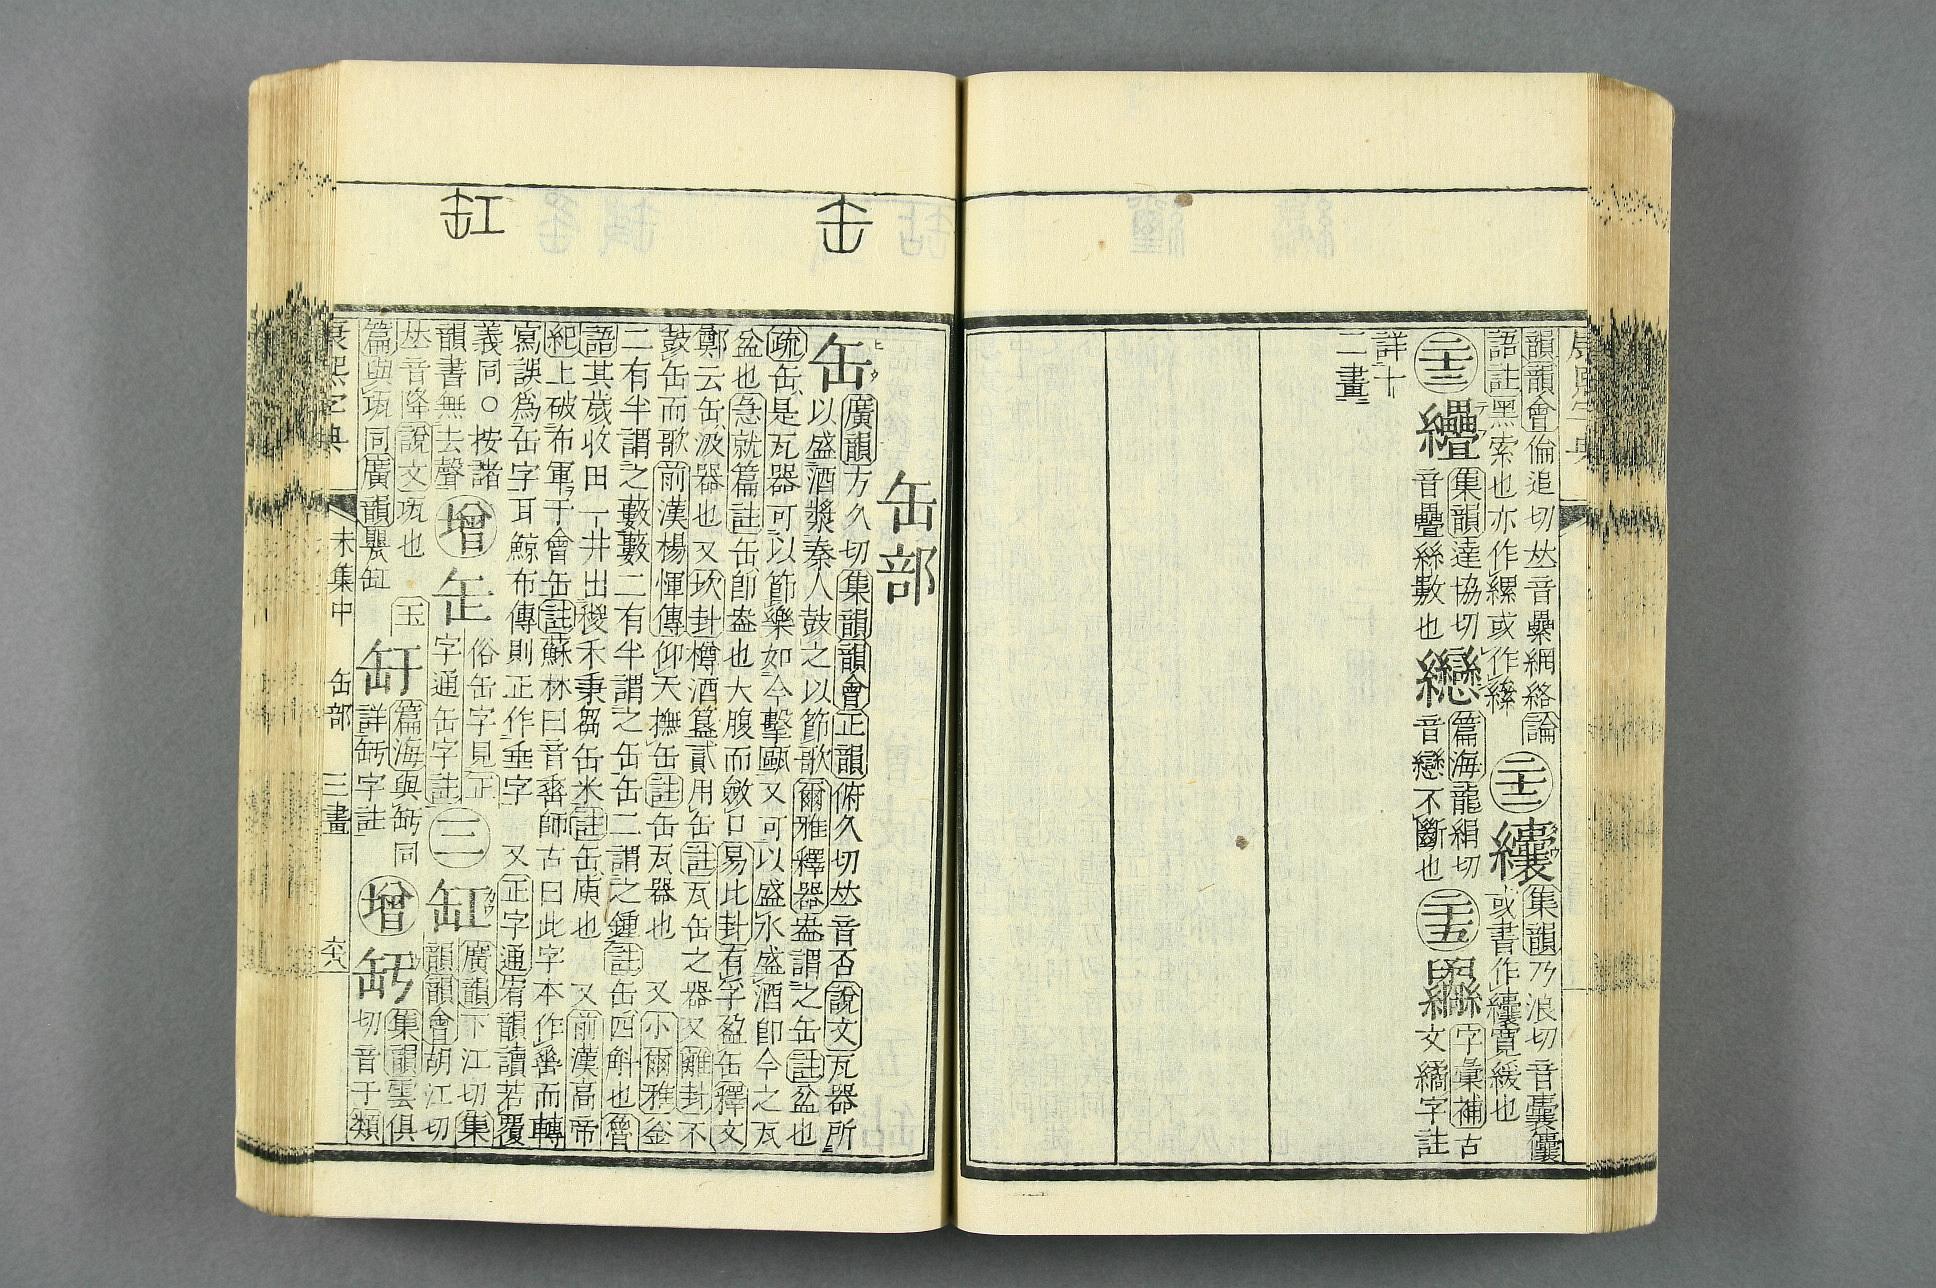 韻韻會倫追切𠀤音纍網絡論
語註黑索也亦作縲或作絫
二十二
纕
集韻乃浪切音囊
或書作 寬緩也
二十三
集韻達協切
音疊絲數也
篇海龍緝切
音戀不斷也
二十五
字彙補古
文繘字註
詳十
二畫
缶
缸
缶部
缶
廣韻方久切集韻韻會正韻俯久切𠀤音否說文瓦器所
以盛酒漿秦人鼓之以節歌爾雅釋器盎謂之缶註盆也
疏缶是瓦器可以節樂如今擊甌又可以盛水盛酒卽今之瓦
盆也急就篇註缶卽盎也大腹而斂口易比封有孚盈缶釋文
鄭云缶汲器也又坎封樽酒簋貳用缶註瓦缶之器又離封不
鼓缶而歌前漢楊惲傳仰天撫缶註缶瓦器也 又小爾雅釜
二有半謂之藪藪二有半謂之缶缶二謂之鍾註缶四斛也魯
語其歲收田一井出稷禾秉芻缶米註缶庾也 又前漢高帝
紀上破布軍于會缶註蘇林曰音𠌯師古曰此字本作𠌯而轉
寫誤爲缶字耳鯨布傳則正作垂字 又正字通宥韻讀若覆
義同○按諸
韻書無去聲
增
缶
俗缶字見正
字通缶字註
三
缸
廣韻下江切集
韻韻會胡江切
𠀤音降說文瓨也
篇與瓨同廣韻甖缸
玉
缸
篇海與 同
詳 字註
增
集韻雲俱
切音于類
康熙字典
未集中
缶部
三畫
六八